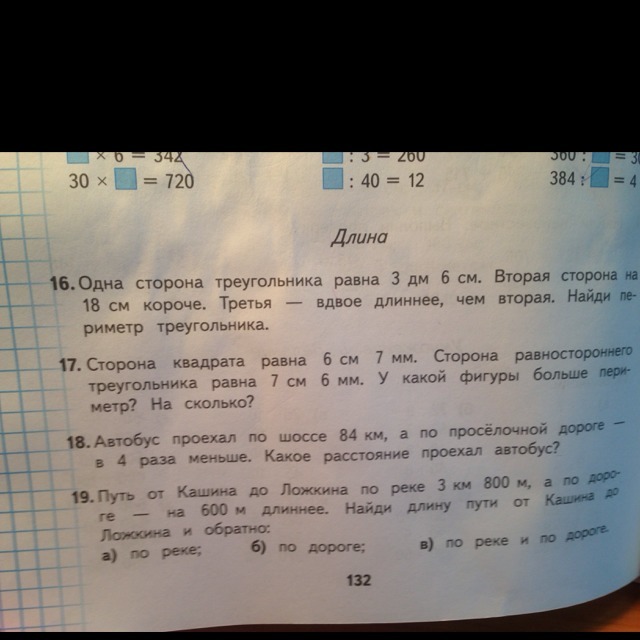 × 6 = 342
: 3 = 260
360 :
30 × = 720
: 40 = 12
384 : = 4
Длина
16. Одна сторона треугольника равна 3 дм 6 см. Вторая сторона на
18 см короче. Третья — вдвое длиннее, чем вторая. Найди пе-
риметр треугольника.
17. Сторона квадрата равна 6 см 7 мм. Сторона равностороннего
треугольника равна 7 см 6 мм. У какой фигуры больше пери-
метр? На сколько?
18. Автобус проехал по шоссе 84 км, а по просёлочной дороге —
в 4 раза меньше. Какое расстояние проехал автобус?
19. Путь от Кашина до Ложкина по реке 3 км 800 м, а по доро-
ге — на 600 м длиннее. Найди длину пути от Кашина до
Ложкина и обратно:
а) по реке; б) по дороге; в) по реке и по дороге.
132